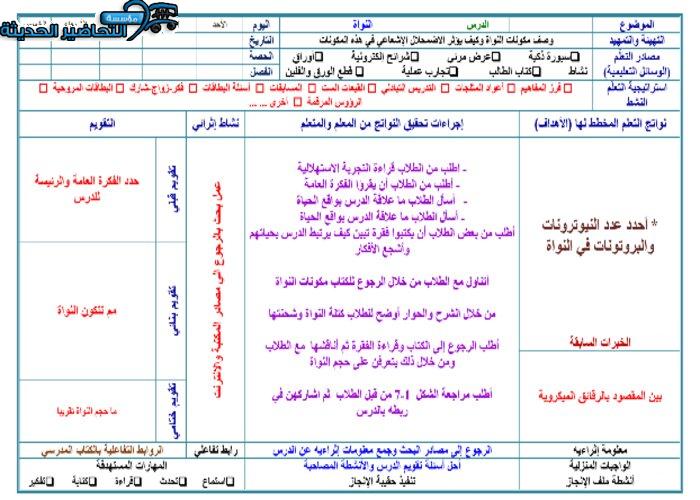 مؤسسة
التحاضير الحديثة
الموضوع
الدرس
النواة
اليوم
الاحد
التهيئة والتمهيد
وصف مكونات النواة وكيف يؤثر الاضمحلال الإشعاعي في هذه المكونات
التاريخ
مصادر التعلم
(الوسائل التعليمية)
سبورة ذكية
عرض مرئي
شرائح إلكترونية
اوراق
الحصة
نشاط
كتاب الطالب
تجارب عملية
قطع الورق والفلين
الفصل
استراتيجية التعلم
النشط
فرز المفاهيم
أعواد المثلجات
التدريس التبادلي
القبعات الست
المسابقات
أسئلة البطاقات
فكر-زواج-شارك
البطاقات المروحية
الرؤوس المرقمة
أخرى ... ...
نواتج التعلم المخطط لها (الأهداف)
إجراءات تحقيق النواتج من المعلم والمتعلم
نشاط إثرائي
التقويم
* أحدد عدد النيوترونات
والبروتونات في النواة
الخبرات السابقة
بين المقصود بالرقائق الميكروية
- اطلب من الطلاب قراءة التجربة الاستهلالية
- أطلب من الطلاب أن يقرؤا الفكرة العامة
- أسأل الطلاب ما علاقة الدرس بواقع الحياة
- أسأل الطلاب ما علاقة الدرس بواقع الحياة
أطلب من بعض الطلاب أن يكتبوا فقرة تبين كيف يرتبط الدرس بحياتهم
وأشجع الأفكار
أتناول مع الطلاب من خلال الرجوع للكتاب مكونات النواة
من خلال الشرح والحوار أوضح للطلاب كتلة النواة وشحنتها
أطلب الرجوع إلى الكتاب وقراءة الفقرة ثم أناقشها مع الطلاب
ومن خلال ذلك يتعرفن على حجم النواة
أطلب مراجعة الشكل 1-7 من قبل الطلاب ثم اشاركهن في
ربطه بالدرس
عمل بحث بالرجوع الى مصادر المكتبة والانترنت
تقويم قبلي
حدد الفكرة العامة والرئيسة
للدرس
تقويم بنائي
مم تتكون النواة
تقويم ختامي
ما حجم النواة تقريبا
معلومة إثرائيه
الرجوع إلى مصادر البحث وجمع معلومات إثرائيه عن الدرس
رابط تفاعلي
الروابط التفاعلية بالكتاب المدرسي
الواجبات المنزلية
أحل أسئلة تقويم الدرس والأنشطة المصاحبة
المهارات المستهدفة
أنشطة ملف الإنجاز
تنفيذ حقيبة الإنجاز
استماع
تحدث
قراءة
كتابة
تفكير